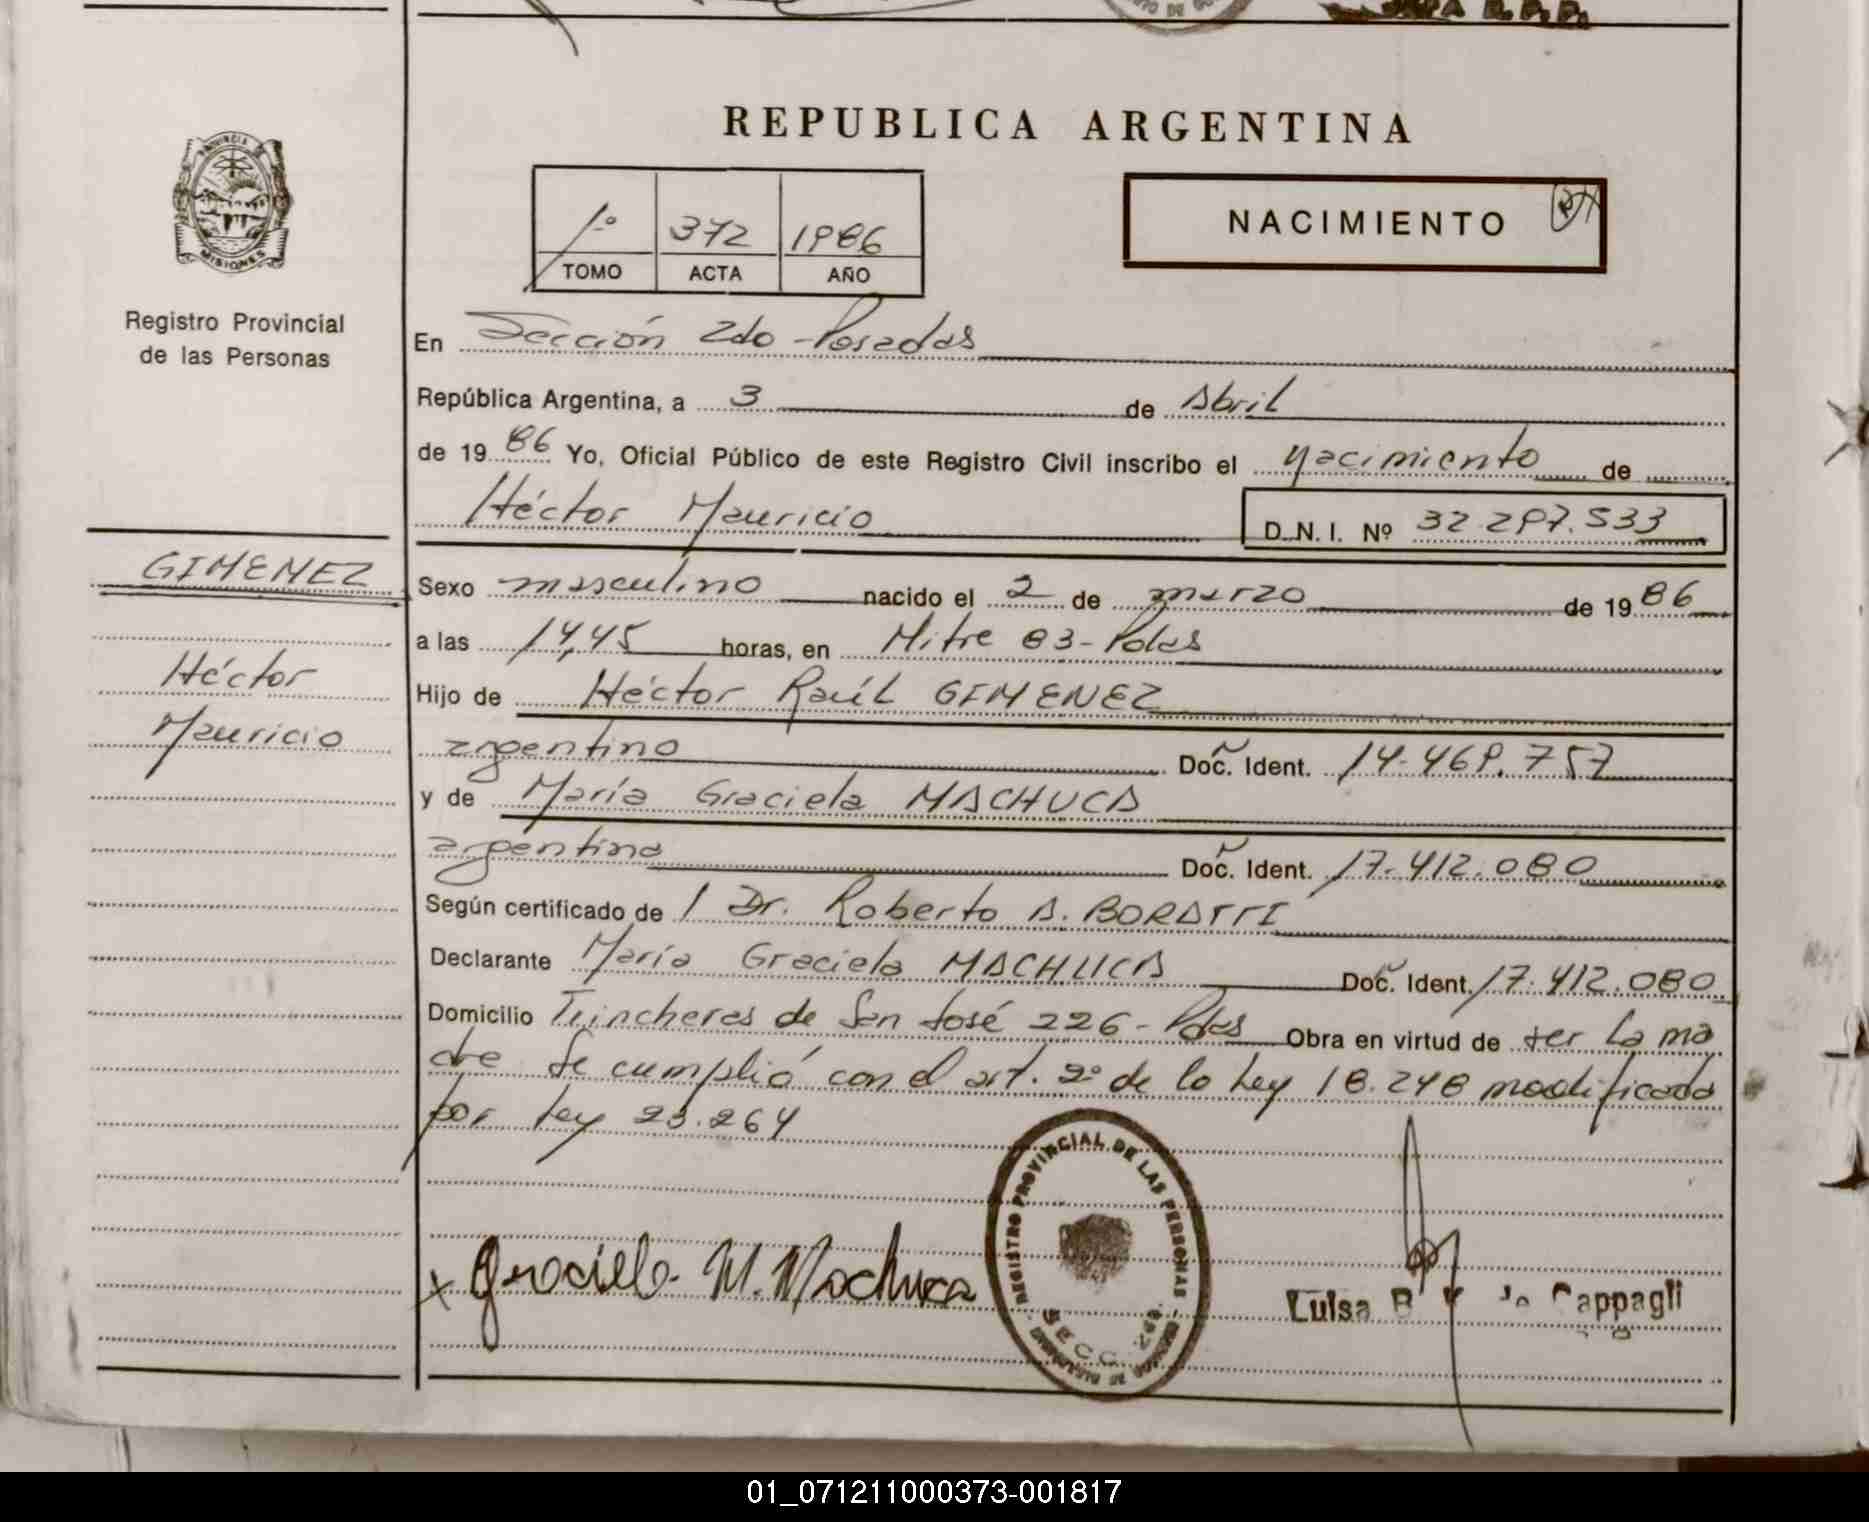 REPUBLICA ARGENTINA
PROVINCIA DE
MISIONES
Registro Provincial
de las Personas
1º 372 1986
TOMO ACTA AÑO
NACIMIENTO
En Sección 2do - Posadas
República Argentina, a 3 de Abril
de 1986 Yo, Oficial Público de este Registro Civil inscribo el nacimiento de
Héctor Mauricio D.N.I. Nº 32.297.533
GIMENEZ
Héctor
Mauricio
Sexo masculino nacido el 2 de marzo de 1986
a las 14,45 horas, en Mitre 83 - Pdas
Hijo de Héctor Raúl GIMENEZ
argentino Doc. Ident. 14.469.757
y de María Graciela MACHUCA
argentina Doc. Ident. 17.412.080
Según certificado de 1 Dr. Roberto A. BORATTI
Declarante María Graciela MACHUCA Doc. Ident. 17.412.080
Domicilio Trincheras de San José 226 - Pdas Obra en virtud de ser la ma
dre Se cumplió con el art. 2º de la Ley 18.248 modificada
por Ley 23.264
x Graciela M. Machuca
REGISTRO PROVINCIAL DE LAS PERSONAS
SECC. 2da
Luisa B de Cappagli
01_071211000373-001817